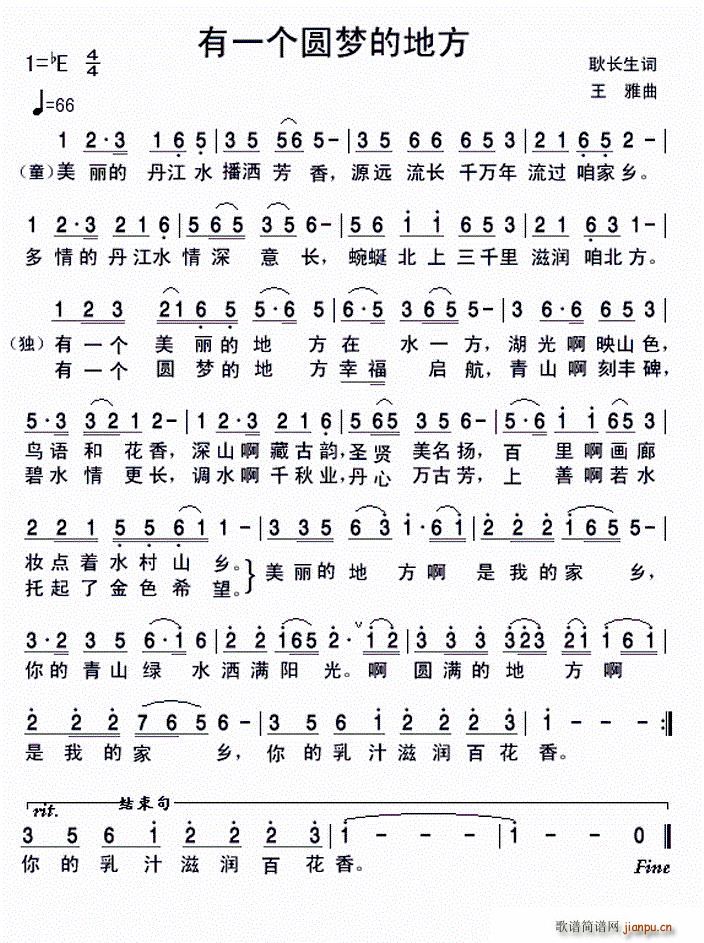 有一个圆梦的地方
1=♭E 4/4
耿长生词
王 雅曲
♩=66
1 2·3 1 6 5 | 3 5 56 5 - | 3 5 6 6 6 5 3 | 2 1 6 5 2 - |
（童）美 丽的 丹江 水 播洒 芳 香，源远 流长 千万年 流过 咱家乡。
1 2·3 2 1 6 | 5 65 35 6 - | 5 6 1 1 6 5 3 | 2 1 6 3 1 - |
多 情的丹江水 情深 意 长，蜿蜒 北 上 三千里 滋润 咱北方。
1 2 3 21 6 5 5·6 5 | 6·5 3 65 5 - | 3 6·6 6 5 3 |
（独）有 一 个 美 丽的 地 方 在 水 一 方，湖 光 啊 映山色，
有 一 个 圆 梦的 地 方 幸 福 启 航，青 山 啊 刻丰碑，
5·3 3 2 1 2 - | 1 2·3 2 1 6 | 5 65 3 5 6 - | 5·6 1 1 65 3 |
鸟 语 和 花 香，深 山 啊 藏古韵，圣贤 美 名 扬，百 里 啊 画 廊
碧 水 情 更 长，调 水 啊 千秋业，丹心 万 古 芳，上 善 啊 若 水
2 2 1 5 5 61 1 - | 3 3 5 6 3 1·61 | 2 2 2 1 65 5 - |
妆 点 着 水 村 山 乡。} 美 丽 的 地 方 啊 是 我 的 家 乡，
托 起 了 金 色 希 望。
3·2 3 5 6·1 6 | 2 2 165 2·∨12 | 3 3 3 323 21 1 6 1 |
你 的 青 山 绿 水 洒 满 阳 光。啊 圆 满 的 地 方 啊
2 2 2 7 6 5 6 - | 3 5 6 1 2 2 2 3 | 1 - - - :‖
是 我 的 家 乡，你 的 乳 汁 滋 润 百 花 香。
rit. 结束句
3 5 6 1 2 2 2 3 | 1 - - - | 1 - - 0 ‖
你 的 乳 汁 滋 润 百 花 香。 Fine
歌谱简谱网
jianpu.cn